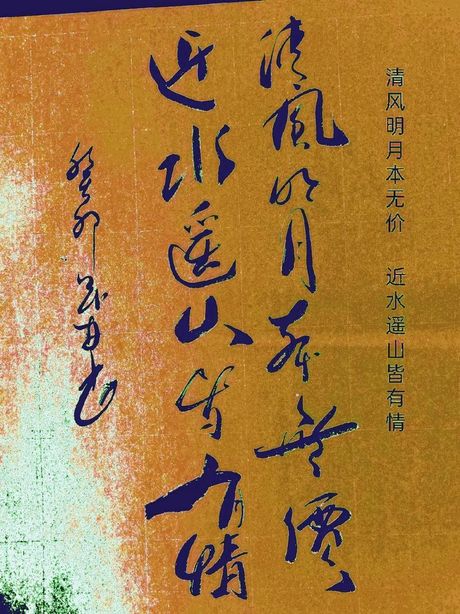 清风明月本无价 近水遥山皆有情
清風明月本無價
近水遥山皆有情
癸卯